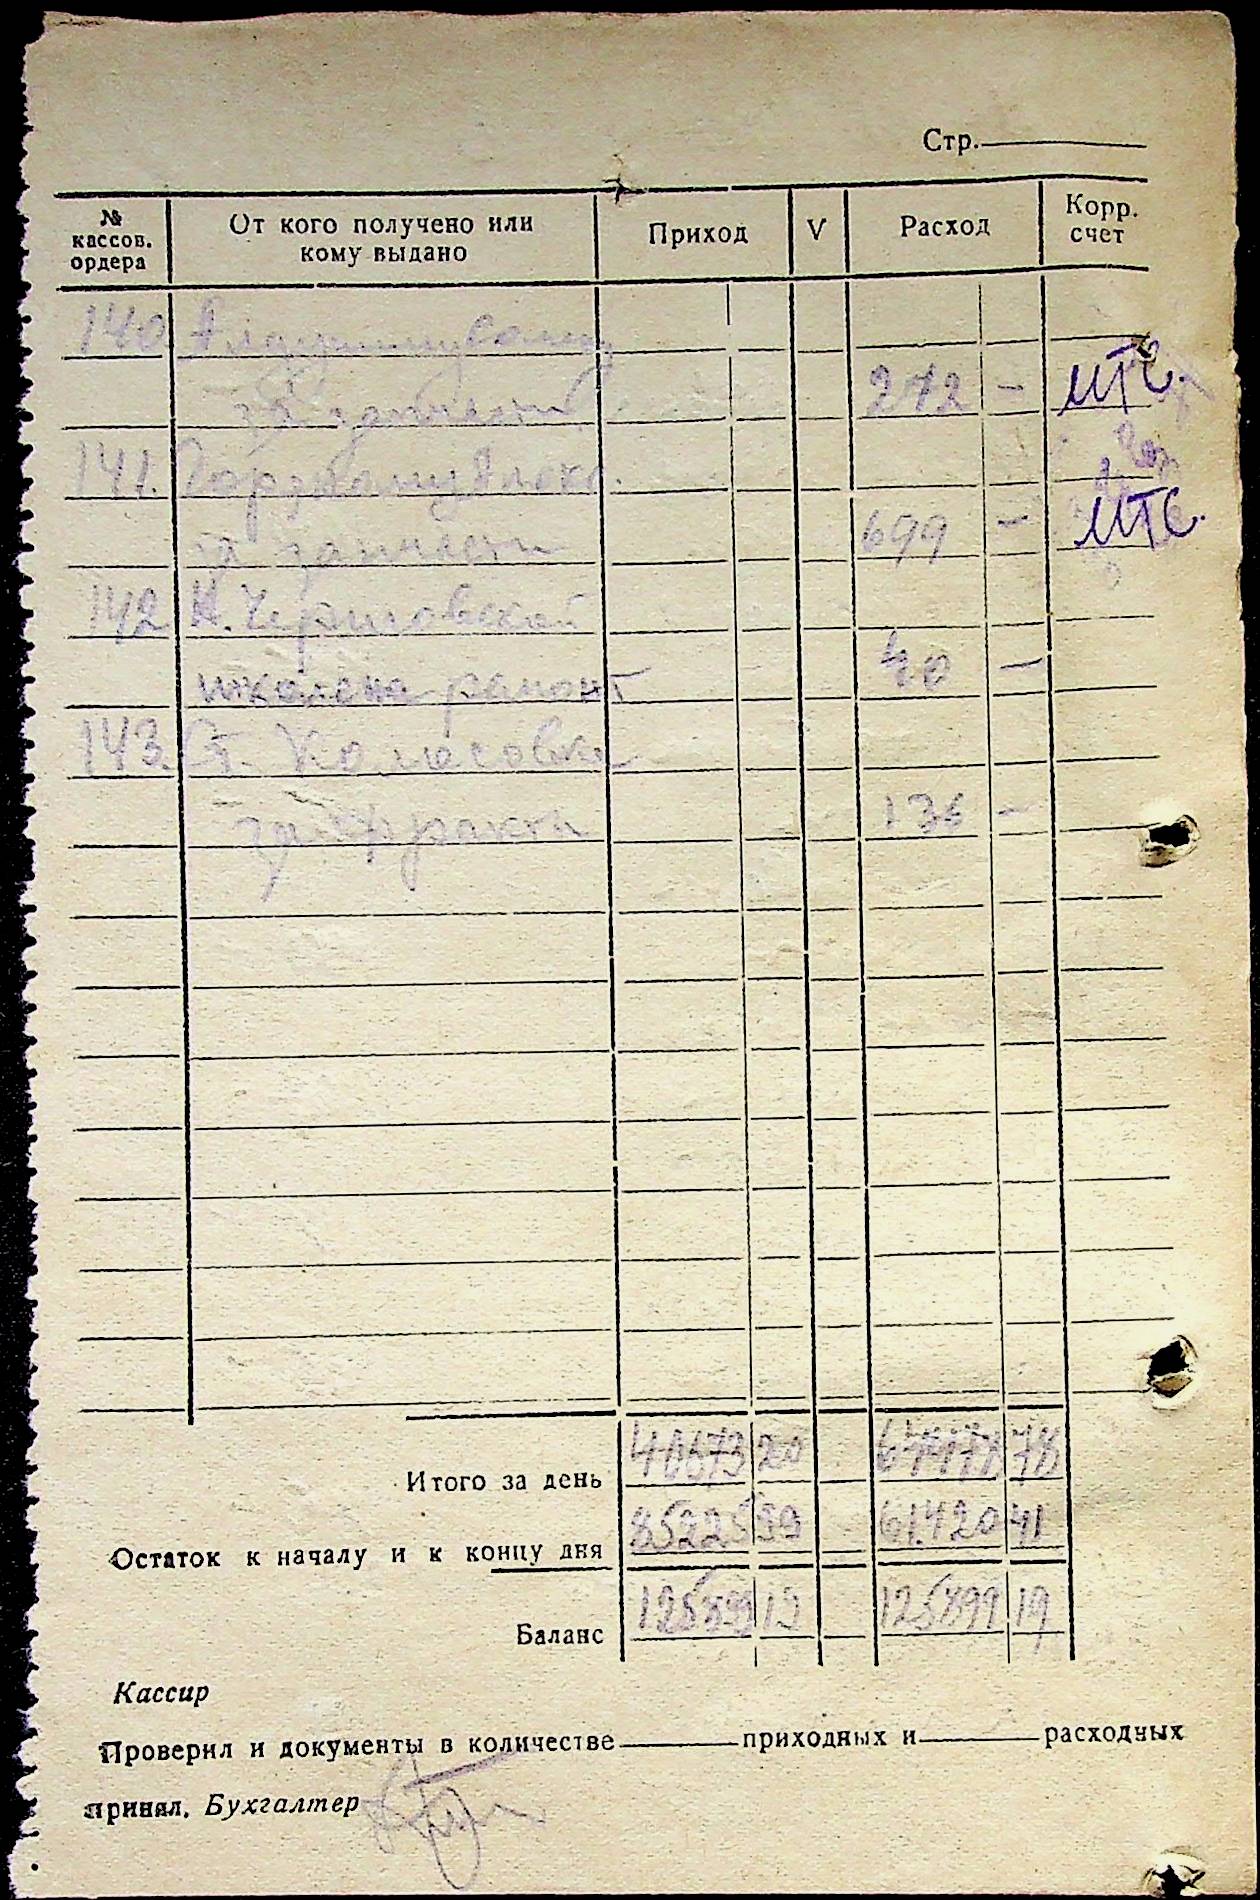 Стр.
№ кассов. ордера От кого получено или кому выдано Приход V Расход Корр. счет
140
за запчасти 272 - МТС.
141.
за запчасти 699 - МТС.
142 Н. Черниговской
ремонт 40 -
143. Ст. Колосовка
за фрахты 136 -
Итого за день 40673 20 78
Остаток к началу и к концу дня 85225 99 61420 41
Баланс 125899 19 125899 19
Кассир
Проверил и документы в количестве приходных и расходных
принял. Бухгалтер